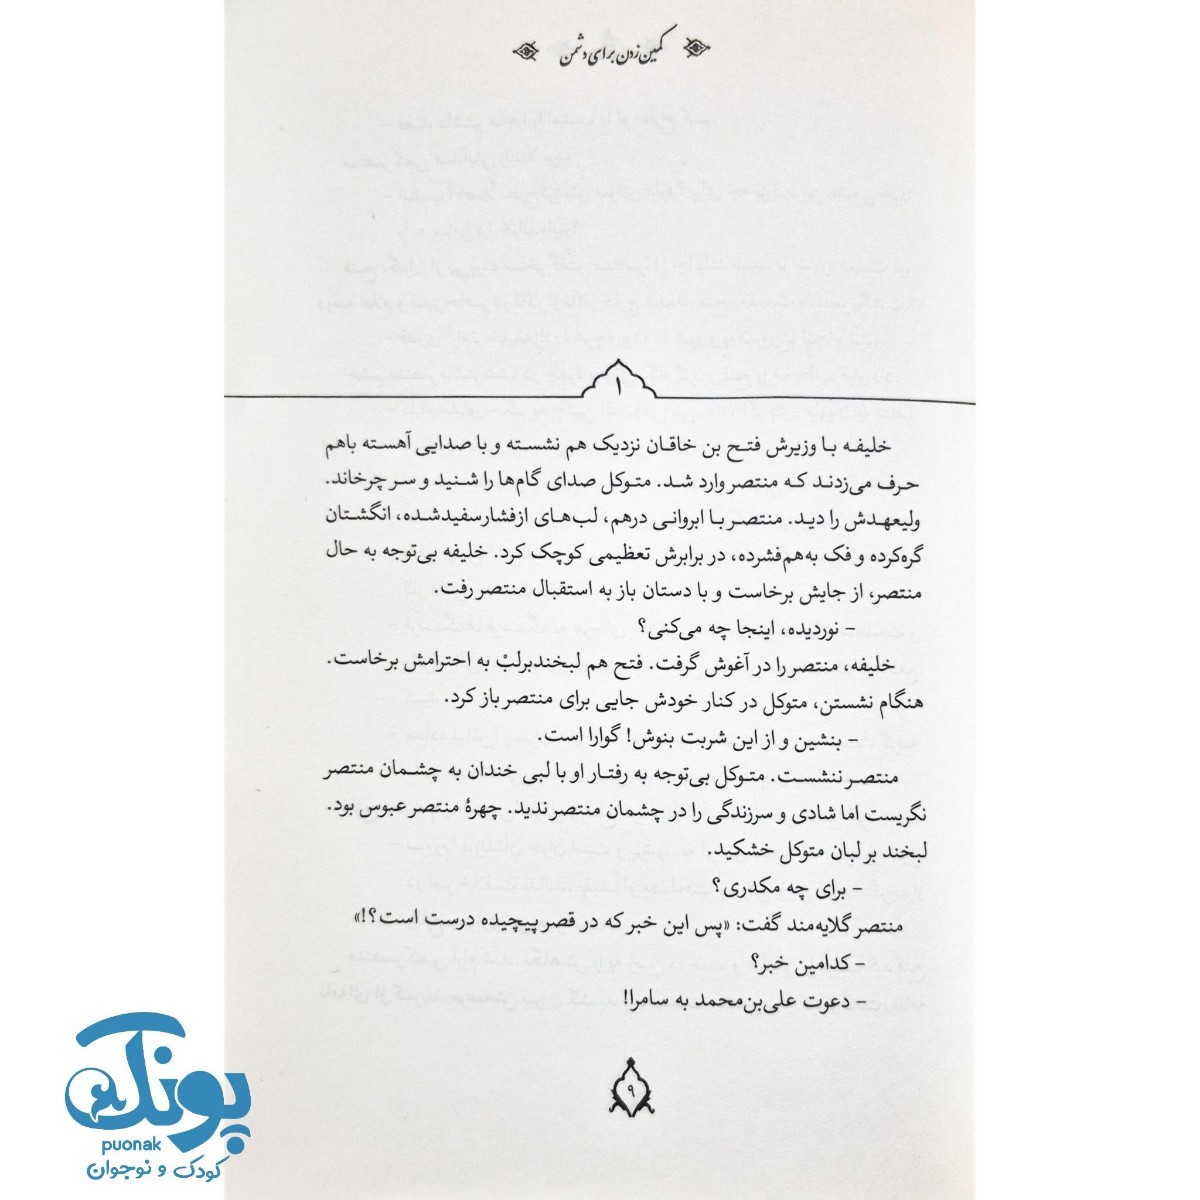 کمین زدن برای دشمن
۱
خلیفه با وزیرش فتح بن خاقان نزدیک هم نشسته و با صدایی آهسته باهم
حرف می‌زدند که منتصر وارد شد. متوکل صدای گام‌ها را شنید و سر چرخاند.
ولیعهدش را دید. منتصر با ابروانی درهم، لب‌های ازفشارسفیدشده، انگشتان
گره‌کرده و فک به‌هم‌فشرده، در برابرش تعظیمی کوچک کرد. خلیفه بی‌توجه به حال
منتصر، از جایش برخاست و با دستان باز به استقبال منتصر رفت.
- نوردیده، اینجا چه می‌کنی؟
خلیفه، منتصر را در آغوش گرفت. فتح هم لبخندبرلبْ به احترامش برخاست.
هنگام نشستن، متوکل در کنار خودش جایی برای منتصر باز کرد.
- بنشین و از این شربت بنوش! گوارا است.
منتصر ننشست. متوکل بی‌توجه به رفتار او با لبی خندان به چشمان منتصر
نگریست اما شادی و سرزندگی را در چشمان منتصر ندید. چهرهٔ منتصر عبوس بود.
لبخند بر لبان متوکل خشکید.
- برای چه مکدری؟
منتصر گلایه‌مند گفت: «پس این خبر که در قصر پیچیده درست است؟!»
- کدامین خبر؟
- دعوت علی‌بن‌محمد به سامرا!
۹
پونک
puonak
کودک و نوجوان